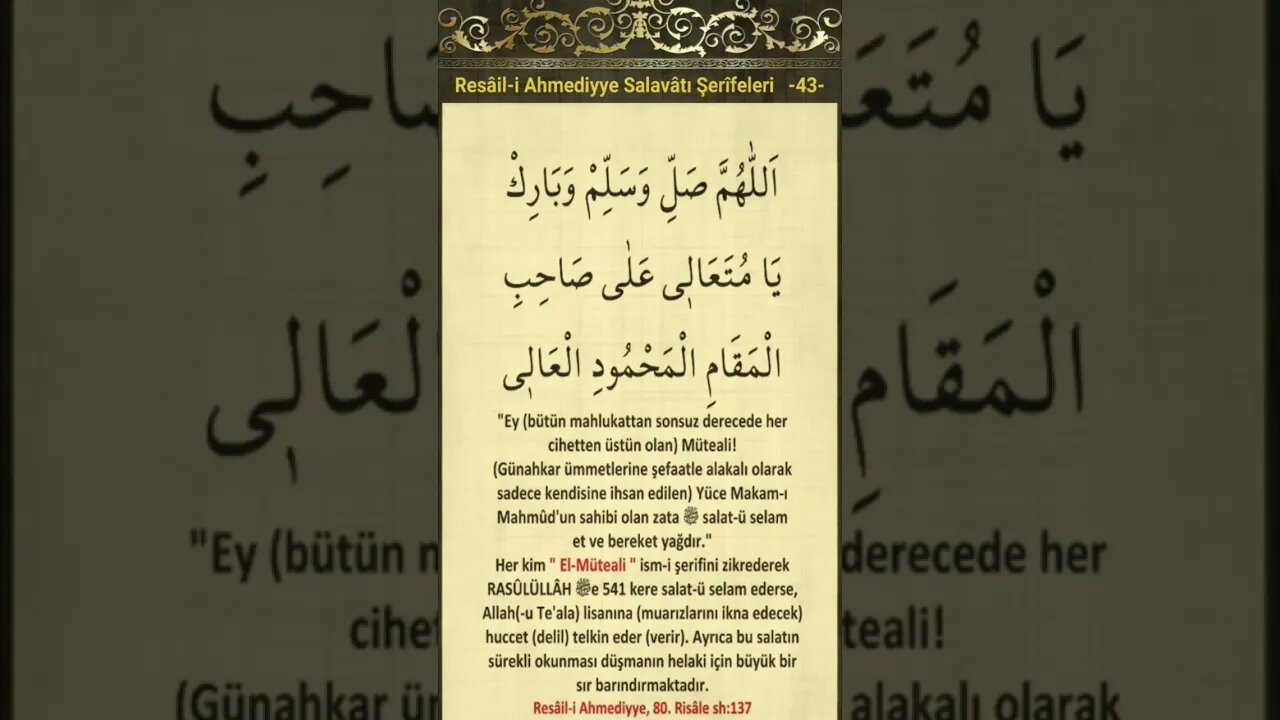 Resâil-i Ahmediyye Salavâtı Şerîfeleri -43-
اَللّٰهُمَّ صَلِّ وَسَلِّمْ وَبَارِكْ
يَا مُتَعَالٖى عَلٰى صَاحِبِ
الْمَقَامِ الْمَحْمُودِ الْعَالٖى
"Ey (bütün mahlukattan sonsuz derecede her
cihetten üstün olan) Müteali!
(Günahkar ümmetlerine şefaatle alakalı olarak
sadece kendisine ihsan edilen) Yüce Makam-ı
Mahmûd'un sahibi olan zata ﷺ salat-ü selam
et ve bereket yağdır."
Her kim " El-Müteali " ism-i şerifini zikrederek
RASÛLÜLLÂH ﷺe 541 kere salat-ü selam ederse,
Allah(-u Te'ala) lisanına (muarızlarını ikna edecek)
huccet (delil) telkin eder (verir). Ayrıca bu salatın
sürekli okunması düşmanın helaki için büyük bir
sır barındırmaktadır.
Resâil-i Ahmediyye, 80. Risâle sh:137